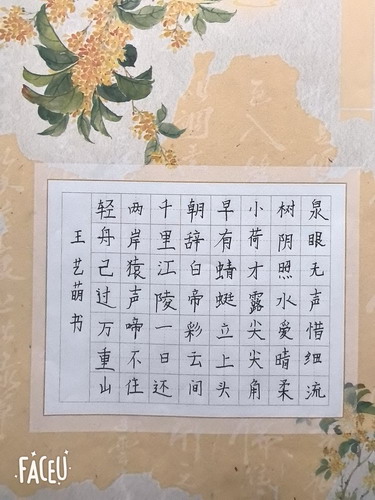 泉眼无声惜细流
树阴照水爱晴柔
小荷才露尖尖角
早有蜻蜓立上头
朝辞白帝彩云间
千里江陵一日还
两岸猿声啼不住
轻舟己过万重山
王艺萌书
FACEU